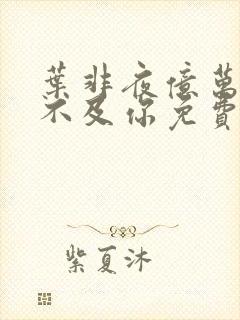 葉非夜億萬
不及你免費
紫夏沐